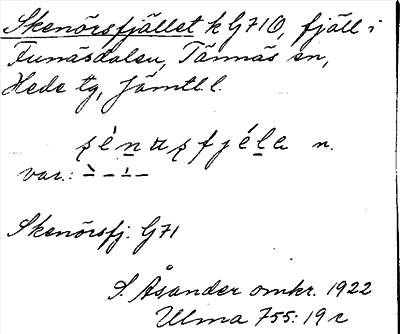 Skenörsfjället k G71O, fjäll i
Funäsdalen, Tännäs sn,
Hede tg, Jämtl l.
n.
var.:
Skenörsfj. G71
S. Åsander omkr. 1922
Ulma 755:19 c